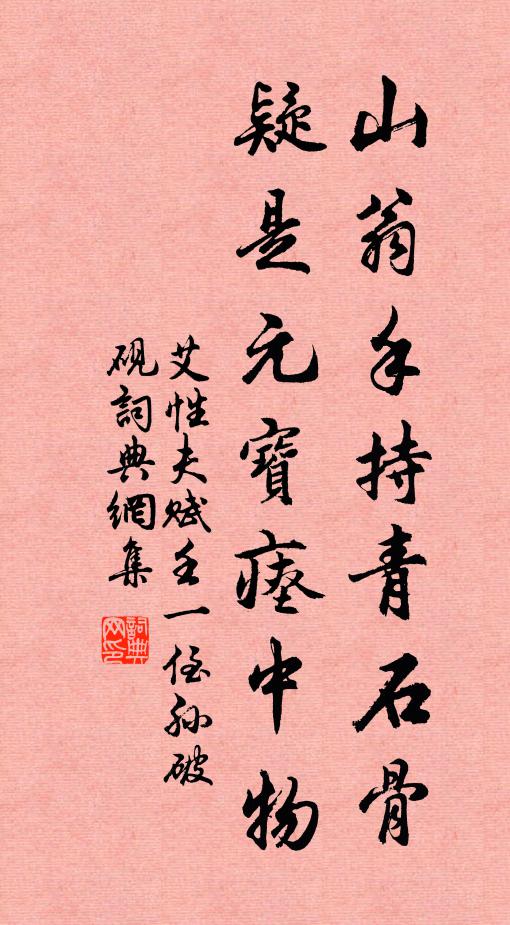 山翁手持青石骨
疑是元寶瘞中物
艾性夫賦壬一侄孫破
硯詞典網集
詞典
网印